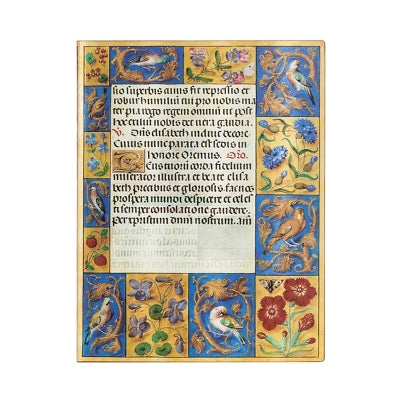 sio superbis cuius fit repressio et
robur humilium cui pro nobis ma
ter pia rego regem omnium ut post
hoc exilium nobis det vera gaudia.
V. Ora elisabeth indue decore.
Cuius nunc parata est sedis in
honore Oremus. Oro.
Tuorum corda fidelium
miserator illustra et beate elisa
beth precibus et gloriosis. fac nos
prospera mundi despicere et celes
ti semper consolatione gaudere.
per xpristum dnm nostrum. am